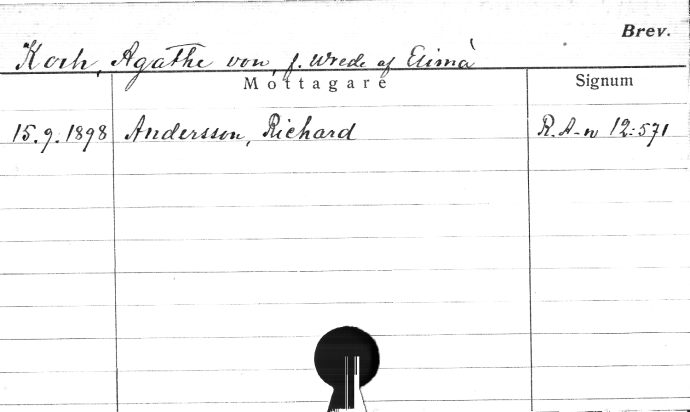 Brev.
Koch, Agathe von, f. Wrede af Elimä
Mottagare Signum
15.9.1898 Andersson, Richard R.A-n 12:571